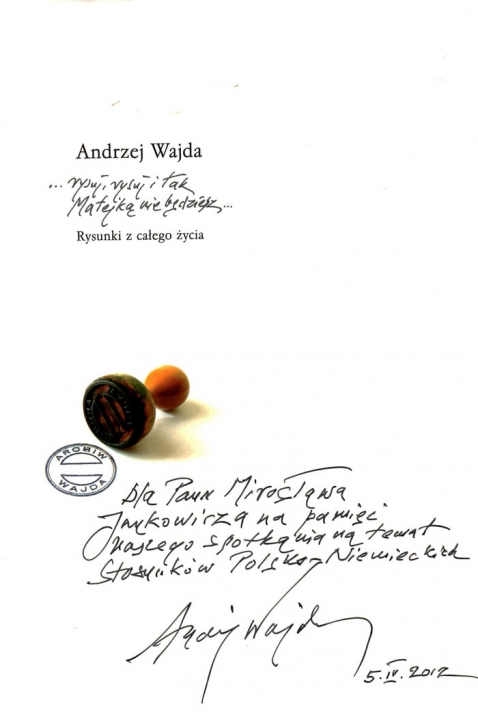 Andrzej Wajda
... rysuj, rysuj i tak
Matejką nie będziesz...
Rysunki z całego życia
ARCHIW
WAJDA
Dla Pana Mirosława
Jankowicza na pamięć
naszego spotkania na temat
Stosunków Polsko-Niemieckich
Andrzej Wajda
5.IV.2012